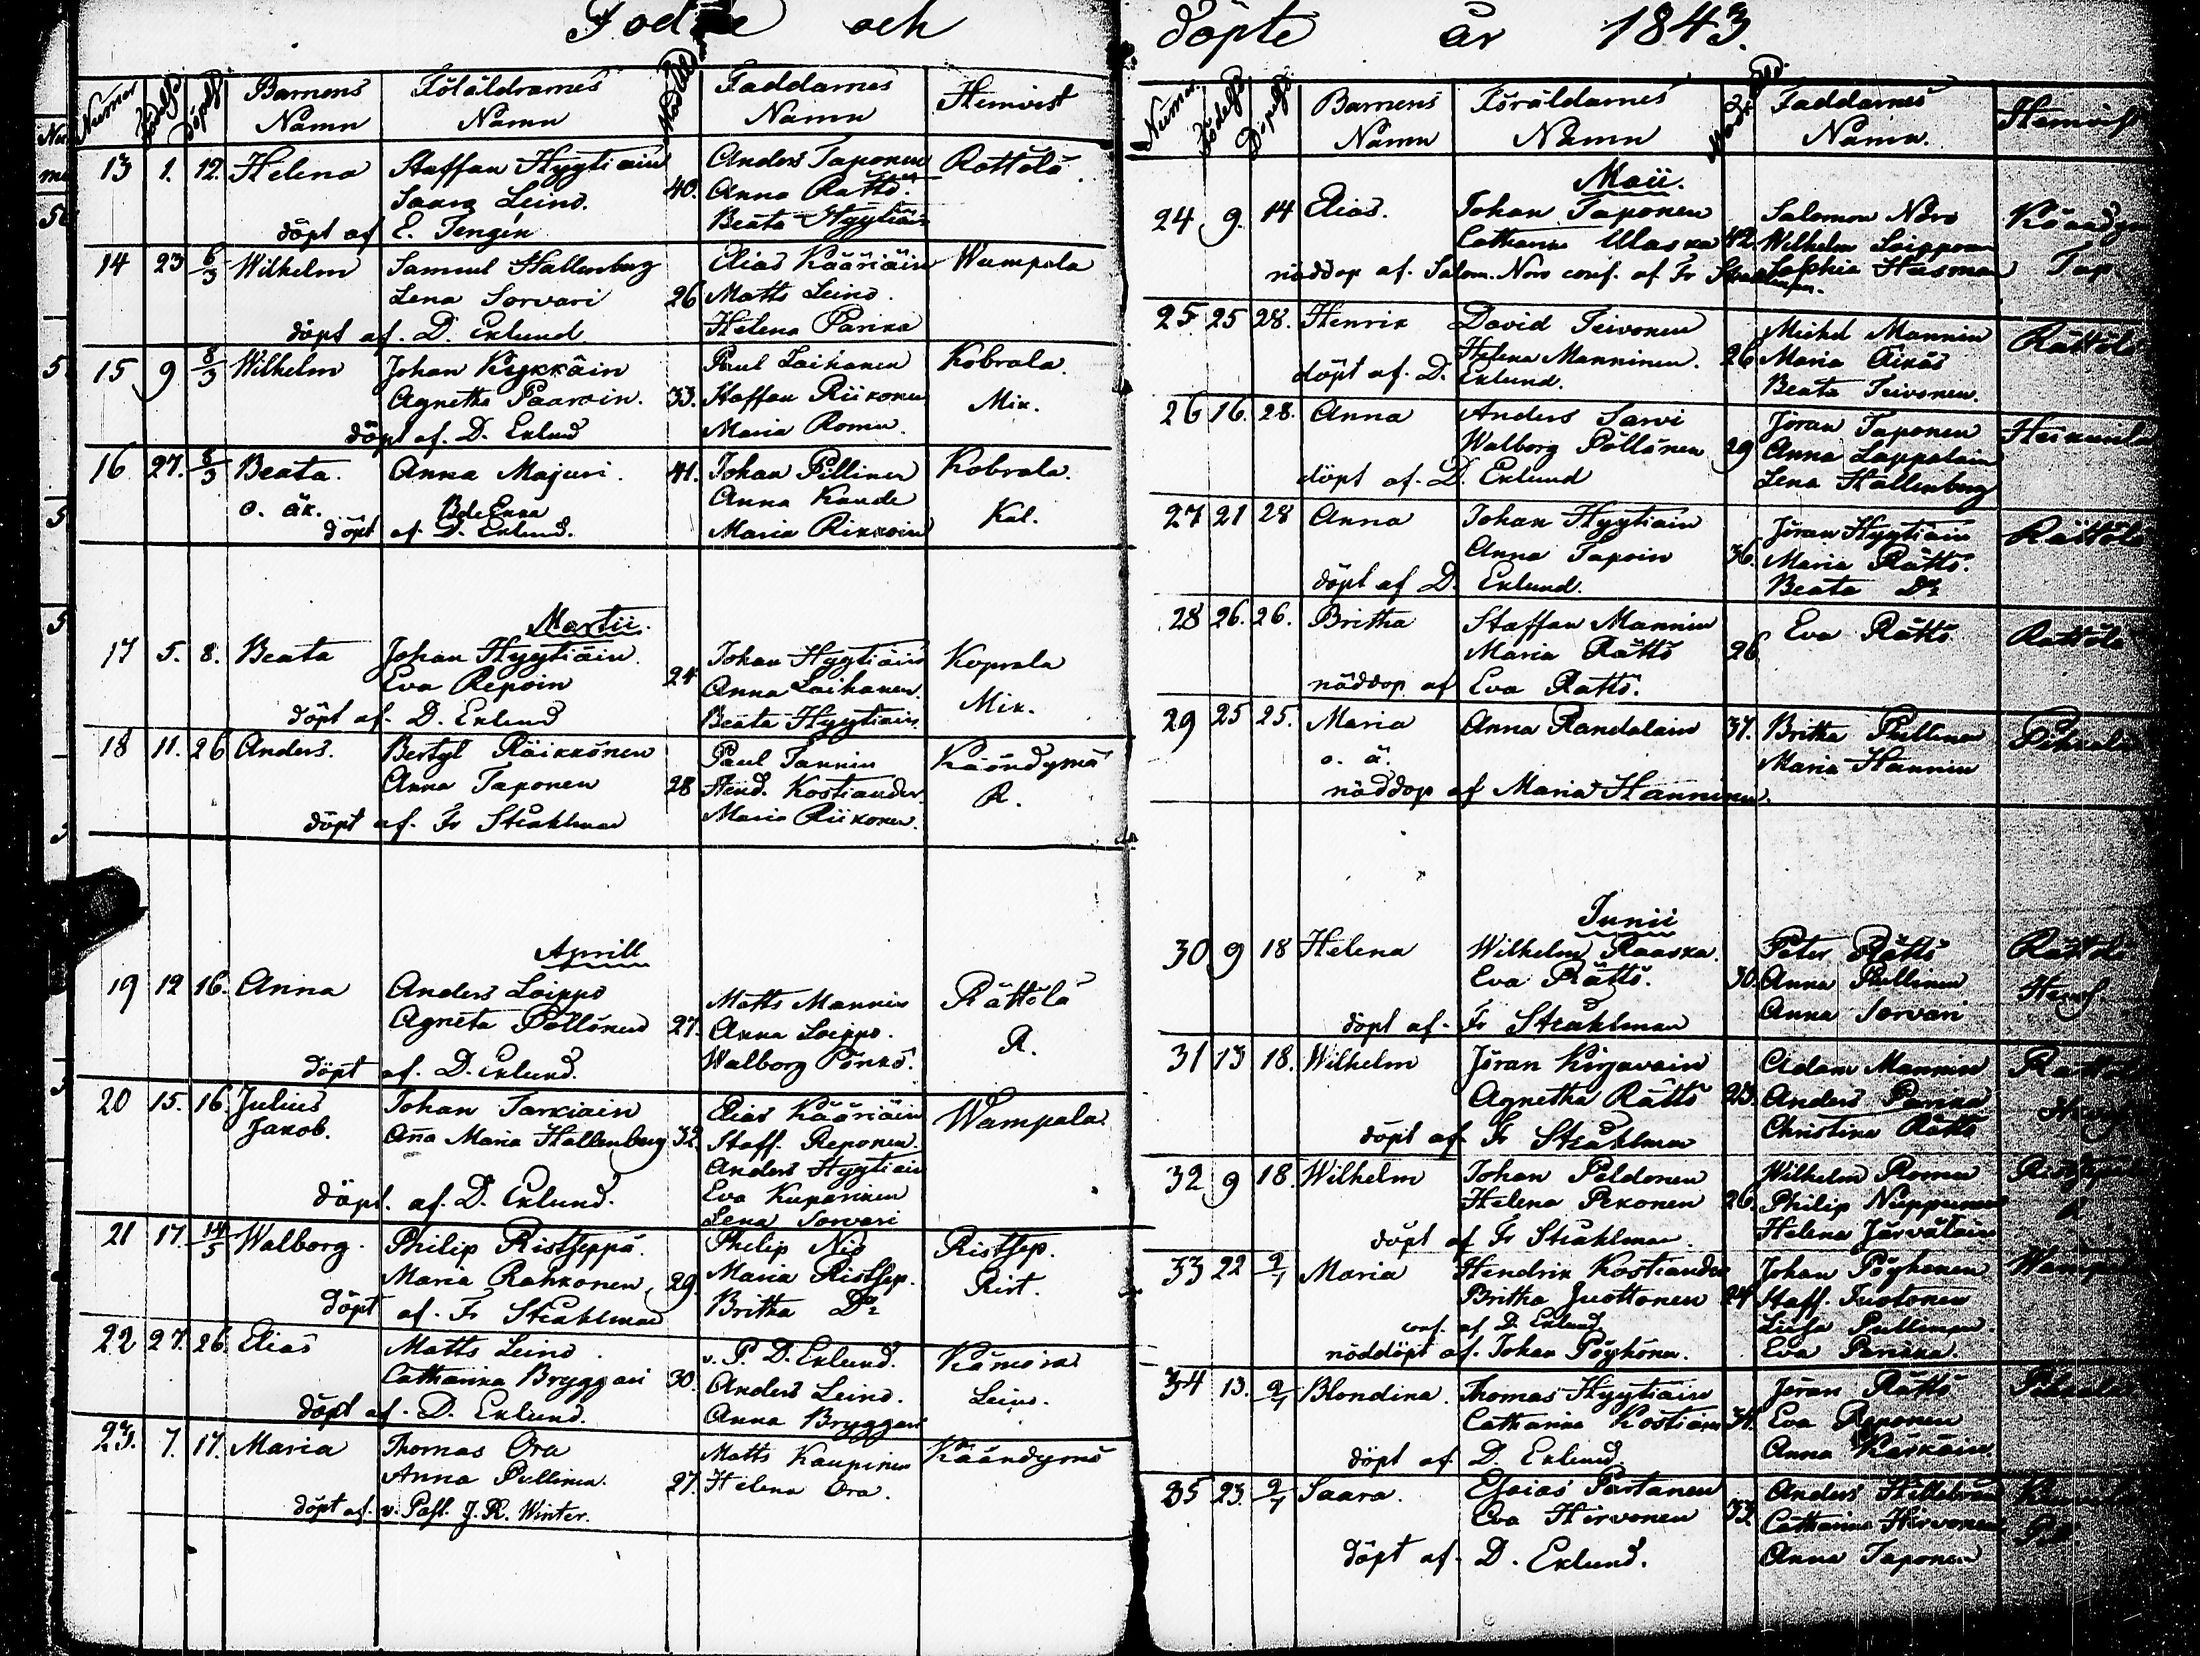 Födde och döpte år 1843.
Numer Födelsed. Döpelsed. Barnens Namn Föräldrarnes Namn Faddarnes Namn Hemvist
13 1. 12. Helena Staffan Hyytiäin Anders Taponen Rättölä
Saara Leino. 40. Anna Rättö.
döpt af E. Tengén Beata Hyytiäin
14 23 6/3 Wilhelm Samuel Hallenberg Elias Kääriäin Wampala
Lena Sorvari 26 Matts Leino.
döpt af. D. Eklund Helena Parika
15 9 8/3 Wilhelm Johan Kykkäin Paul Laihanen Kobrala.
Agnetha Paavoin. 33. Staffan Riikonen Mik.
döpt af. D. Eklund Maria Romu.
16 27. 8/3 Beata. Anna Majuri. 41. Johan Pilliner Kobrala.
o. äk. Anna Kaude Kal.
döpt af. D. Eklund. Maria Rikkoin
Martii.
17 5. 8. Beata Johan Hyytiäin. Johan Hyytiäin Koprala
Eva Repoin 24 Anna Laihanen. Mik.
döpt af. D. Eklund Beata Hyytiäin
18 11. 26 Anders. Bertyl Räikkönen Paul Tannin Käändymä
Anna Taponen 28 Hend. Kostiander R.
döpt af. Fr Stråhlman Maria Riikonen.
Aprill
19 12 16. Anna Anders Loippo Matts Mannin Rättölä
Agneta Pöllönen 27. Anna Loippo. R.
döpt af. D. Eklund. Walborg Pönkö.
20 15. 16. Julius Johan Tarkiain Elias Kääriäin Wampala
Jakob. Anna Maria Hallenberg 32. Staff. Reponen
Anders Hyytiäin
döpt. af. D. Eklund. Eva Kuparinen
Lena Sorvari
21 17. 14/5 Walborg. Philip Ristseppä. Philip Nio Ristsep.
Maria Rahkonen 29. Maria Ristsep. Rist.
döpt af. Fr Stråhlman Britha D:o
22 27. 26. Elias Matts Leino. v. P. D. Eklund. Kämärä
Catharina Bryggari 30. Anders Leino. Leino.
döpt af. D. Eklund. Anna Bryggari
23. 7. 17. Maria Thomas Ora Matts Kaupinen Käändymä
Anna Pullinen. 27. Helena Ora.
döpt af. v. Past. J. R. Winter.
Numer Födelsed. Döpelsed. Barnens Namn Föräldarnes Namn Faddarnes Namn. Hemvist
Maii.
24 9. 14 Elias. Johan Taponen Salomon Novo
Catharina Ulaska 42. Wilhelm Loipponen Tap
nöddop af. Salom. Novo conf. af Fr Stråhlman. Sophia Husman
25 25 28. Henrik David Teivonen Michel Mannin Rättölä
Helena Manninen. 26 Maria Äikäs
döpt af. D. Eklund. Beata Teivonen.
26 16. 28. Anna Anders Sarvi Jöran Taponen
Walborg Pöllönen 29 Anna Lappalain
döpt af. D. Eklund Lena Hallenberg
27 21 28 Anna Johan Hyytiäin Jöran Hyytiäin Rättölä
Anna Tapoin 36. Maria Rättö.
döpt af D. Eklund. Beata D:o
28 26. 26. Britha Staffan Mannin Eva Rättö Rättölä
Maria Rättö 26.
nöddop af Eva Rättö.
29 25 25. Maria Anna Randalain 37. Britha Pullinen Pihkala
o. ä. Maria Hannin
nöddop af Maria Hanninen.
Junii
30 9 18 Helena Wilhelm Raaska. Peter Rättö Rättölä
Eva Rättö. 30. Anna Pullinen
döpt af. Fr Stråhlman Anna Sorvari
31 13 18. Wilhelm Jöran Kirjavain Adam Mannin
Agnetha Rättö 23. Anders Parika
döpt af Fr Stråhlman Christina Rättö
32 9 18. Wilhelm Johan Peldonen Wilhelm Romu
Helena Pekonen 26. Philip Nuppunen
döpt af Fr Stråhlman. Helena Järväläin
33 22 2/7 Maria Hendrik Kostiander Johan Pöyhönen
Britha Juottonen 24. Staff. Juotonen
conf. af D. Eklund Liisa Pullinen.
nöddöpt af. Johan Pöyhönen. Eva Parikka.
34 13. 2/7 Blondina. Thomas Hyytiäin Jöran Rättö Pihkala
Catharina Kostiain 34. Eva Reponen
döpt af D. Eklund Anna Käskäin
35 23. 2/7 Saara. Esaias Partanen Anders Hillebrand
Eva Hirvonen 33. Catharina Hirvonen
döpt af. D. Eklund. Anna Taponen